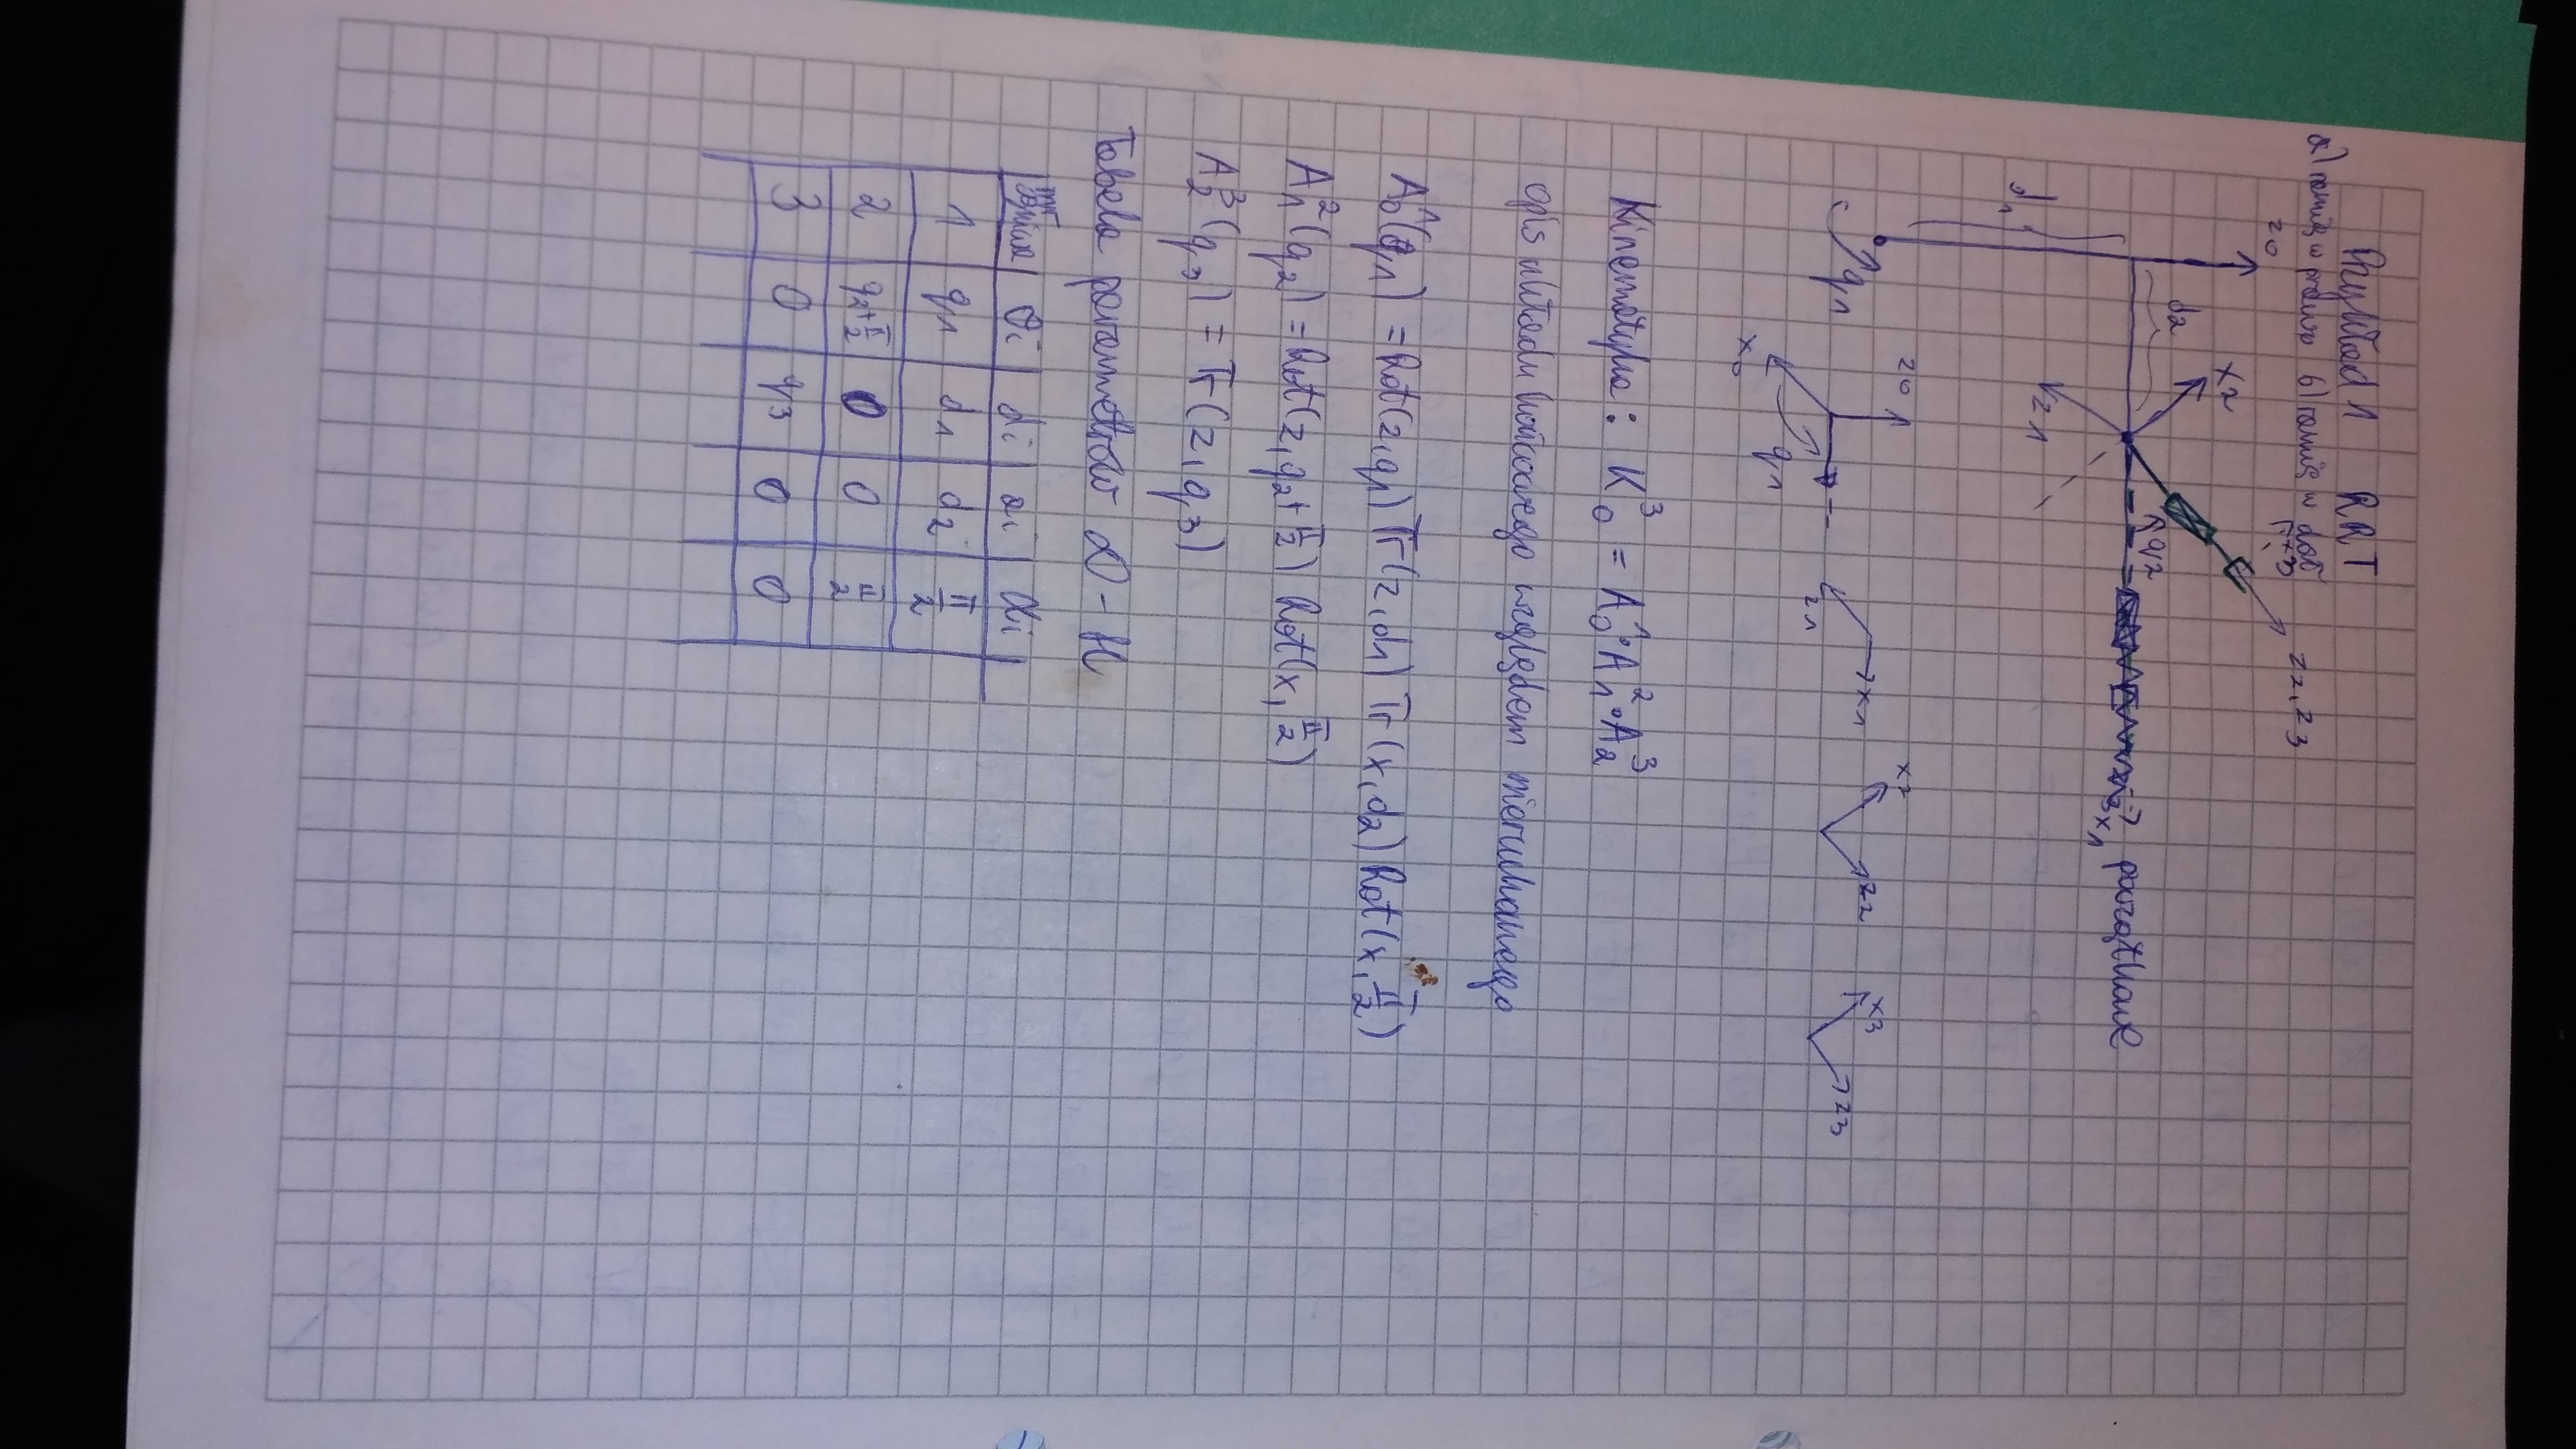 Przykład 1 RRT
a) ramię w prawo b) ramię w dół
z0
x2
d2
x3
z2, z3
d1
z1
q2
x1 początkowe
q1
z0
x0
q1
z1
x1
x2
z2
x3
z3
Kinematyka: K₀³ = A₀¹ ∘ A₁² ∘ A₂³
opis układu końcowego względem nieruchomego
A₀¹(q1) = Rot(z, q1) Tr(z, d1) Tr(x, d2) Rot(x, π/2)
A₁²(q2) = Rot(z, q2+π/2) Rot(x, π/2)
A₂³(q3) = Tr(z, q3)
Tabela parametrów D-H
θi di ai αi
1 q1 d1 d2 π/2
2 q2+π/2 0 0 π/2
3 0 q3 0 0